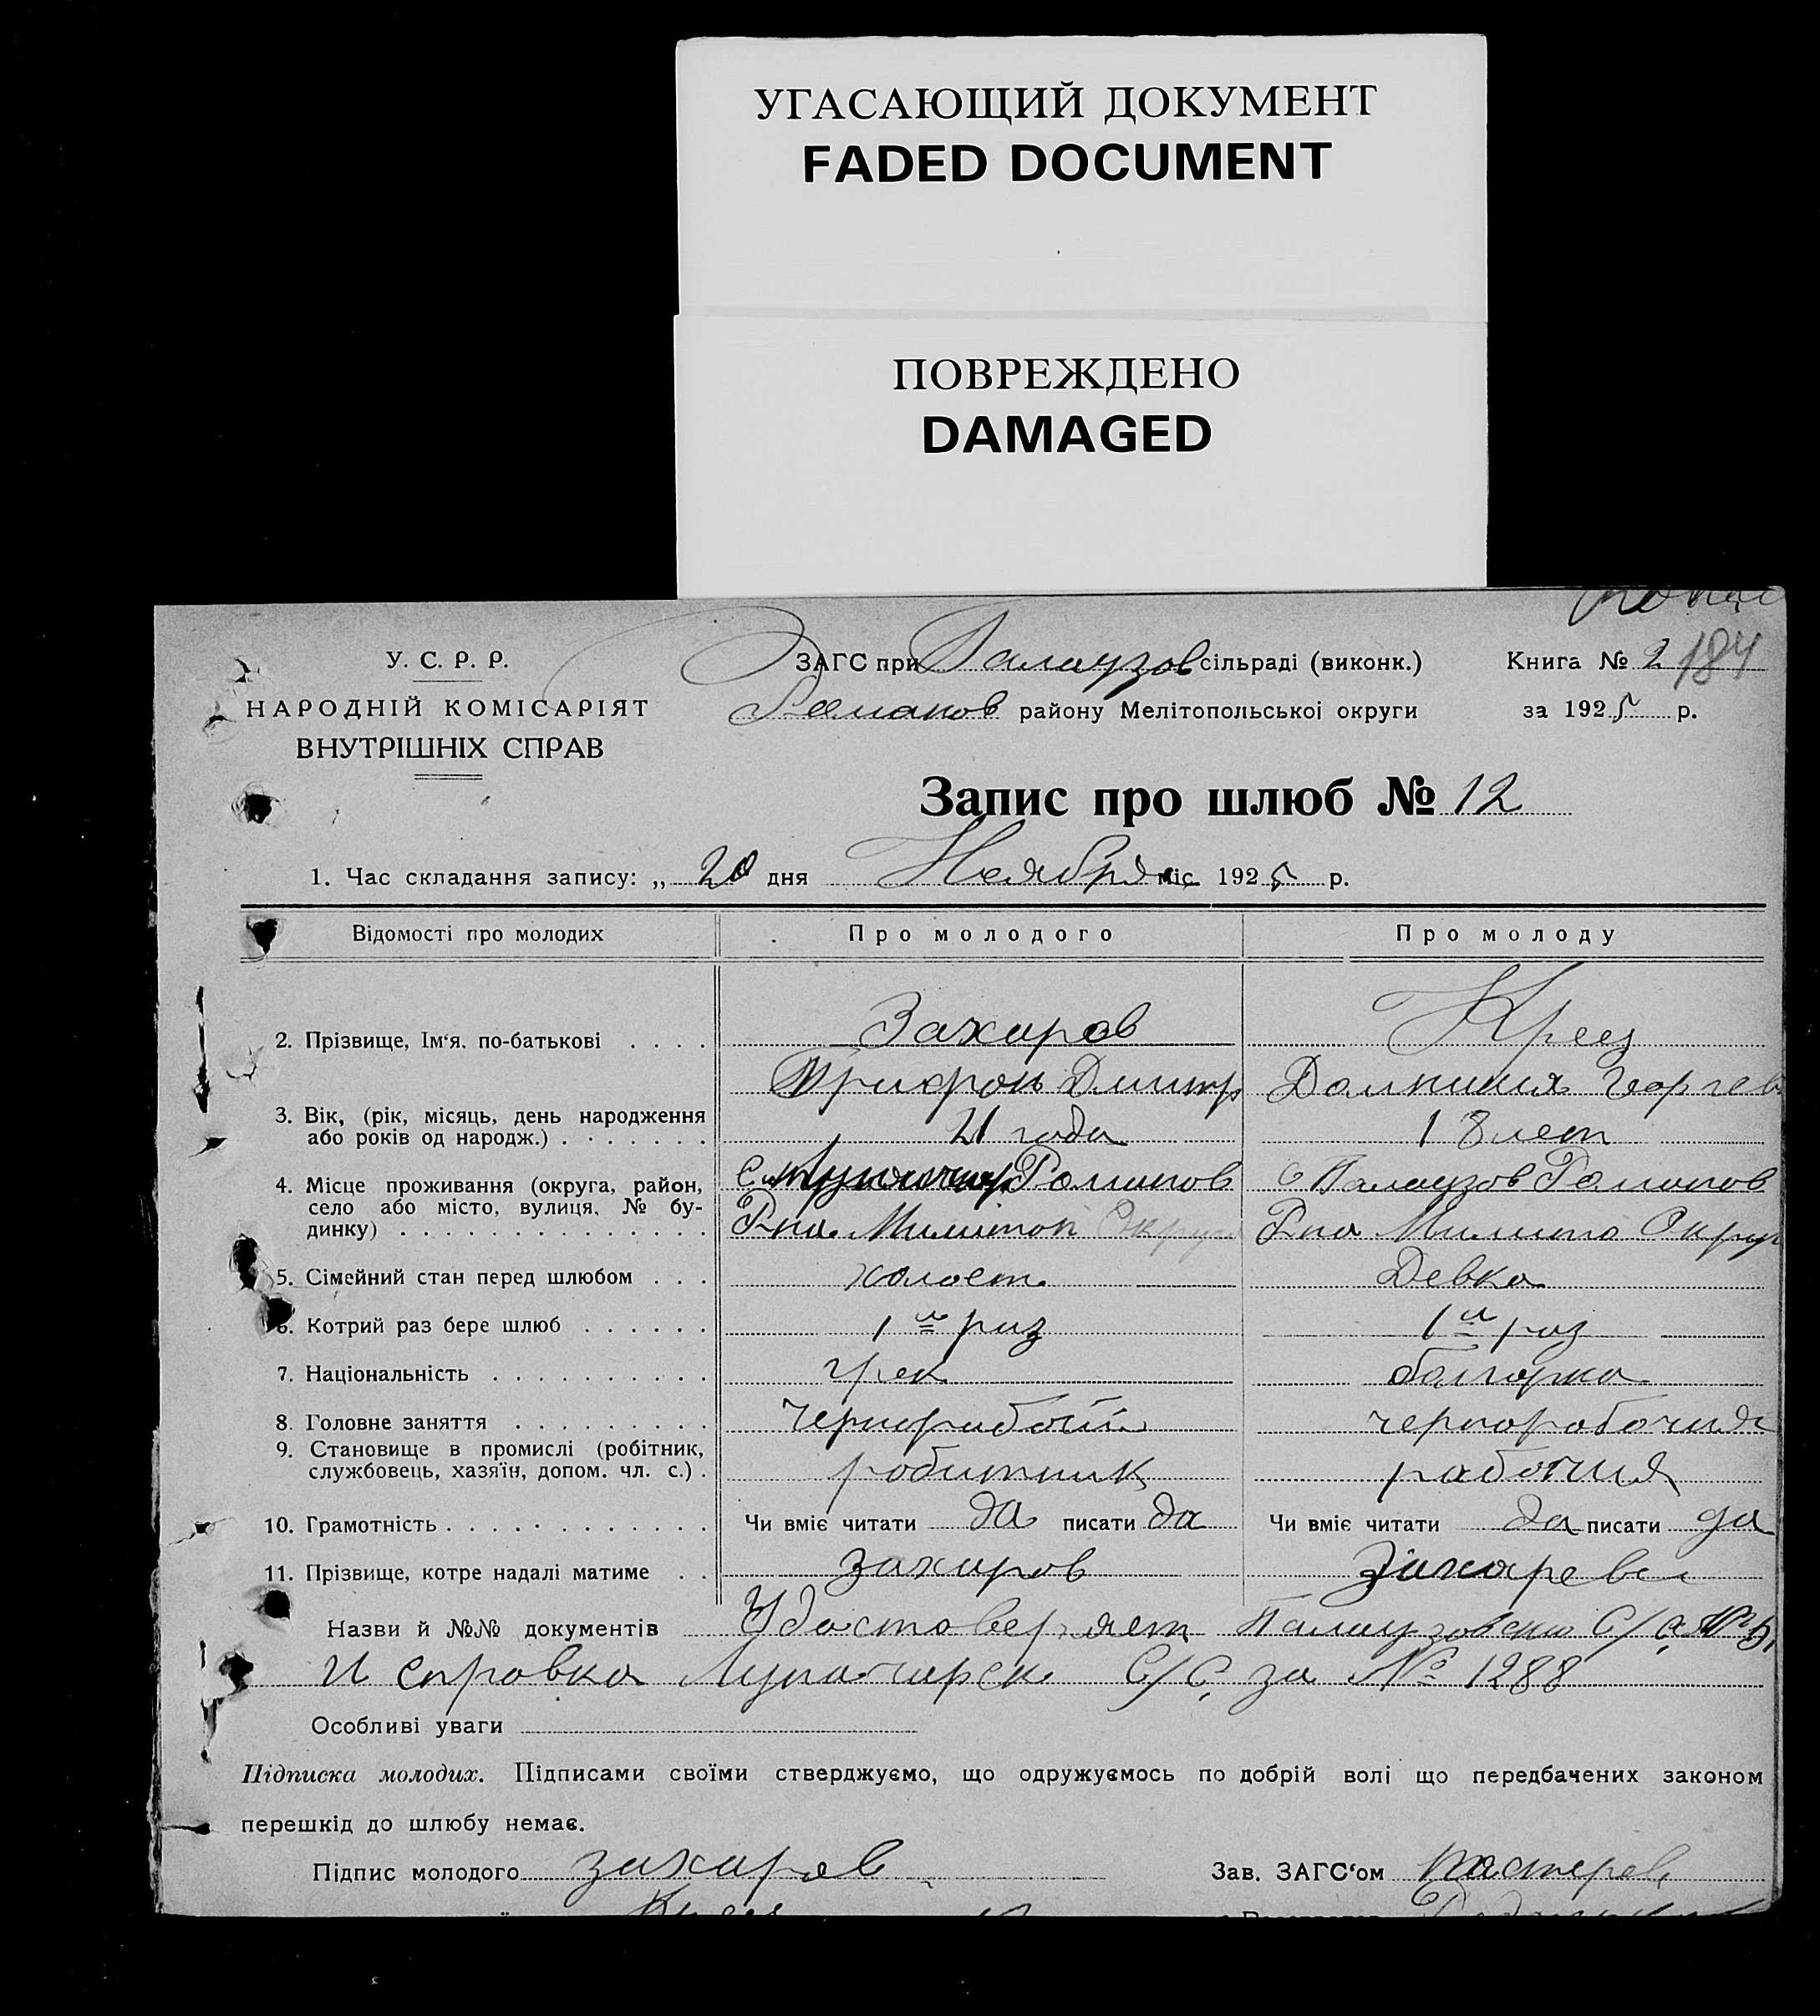 УГАСАЮЩИЙ ДОКУМЕНТ
FADED DOCUMENT
ПОВРЕЖДЕНО
DAMAGED
У. С. Р. Р.
НАРОДНІЙ КОМІСАРІЯТ
ВНУТРІШНІХ СПРАВ
ЗАГС при Палаузов сільраді (виконк.)
Романов району Мелітопольської округи
Книга № 2 184
за 1925 р.
Запис про шлюб № 12
1. Час складання запису: „ 20 дня Ноября міс. 1925 р.
Відомості про молодих Про молодого Про молоду
2. Прізвище, Ім'я. по-батькові . . . . Захаров
Трифон Дмитр Домникия Георгев
3. Вік, (рік, місяць, день народження
або років од народж.) . . . . . . . 21 года 18 лет
4. Місце проживання (округа, район,
село або місто, вулиця, № бу-
динку) . . . . . . . . . . . . . .
Романов с Палаузов Романов
Р-на Милитоп Округа Р-на Милито Округ
5. Сімейний стан перед шлюбом . . . холост Девка
6. Котрий раз бере шлюб . . . . . . 1й раз 1й раз
7. Національність . . . . . . . . . . грек болгарка
8. Головне заняття . . . . . . . . . чернорабочий чернорабочия
9. Становище в промислі (робітник,
службовець, хазяїн, допом. чл. с.) . робитник рабочия
10. Грамотність . . . . . . . . . . . . Чи вміє читати да писати да Чи вміє читати да писати да
11. Прізвище, котре надалі матиме . . Захаров Захарева
Назви й №№ документів Удостоверяет Палаузовский С/С
И справка Луначарск С/С за № 1288
Особливі уваги
Підписка молодих. Підписами своїми стверджуємо, що одружуємось по добрій волі що передбачених законом
перешкід до шлюбу немає.
Підпис молодого Захаров Зав. ЗАГС'ом